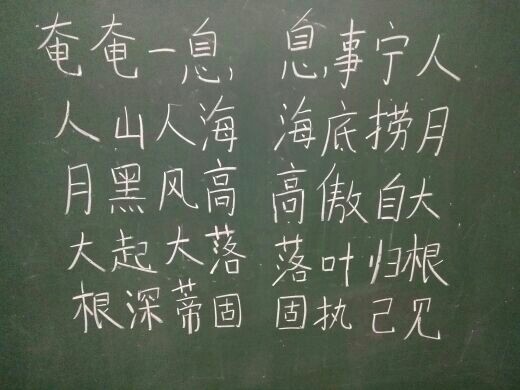 奄奄一息 息事宁人
人山人海 海底捞月
月黑风高 高傲自大
大起大落 落叶归根
根深蒂固 固执己见